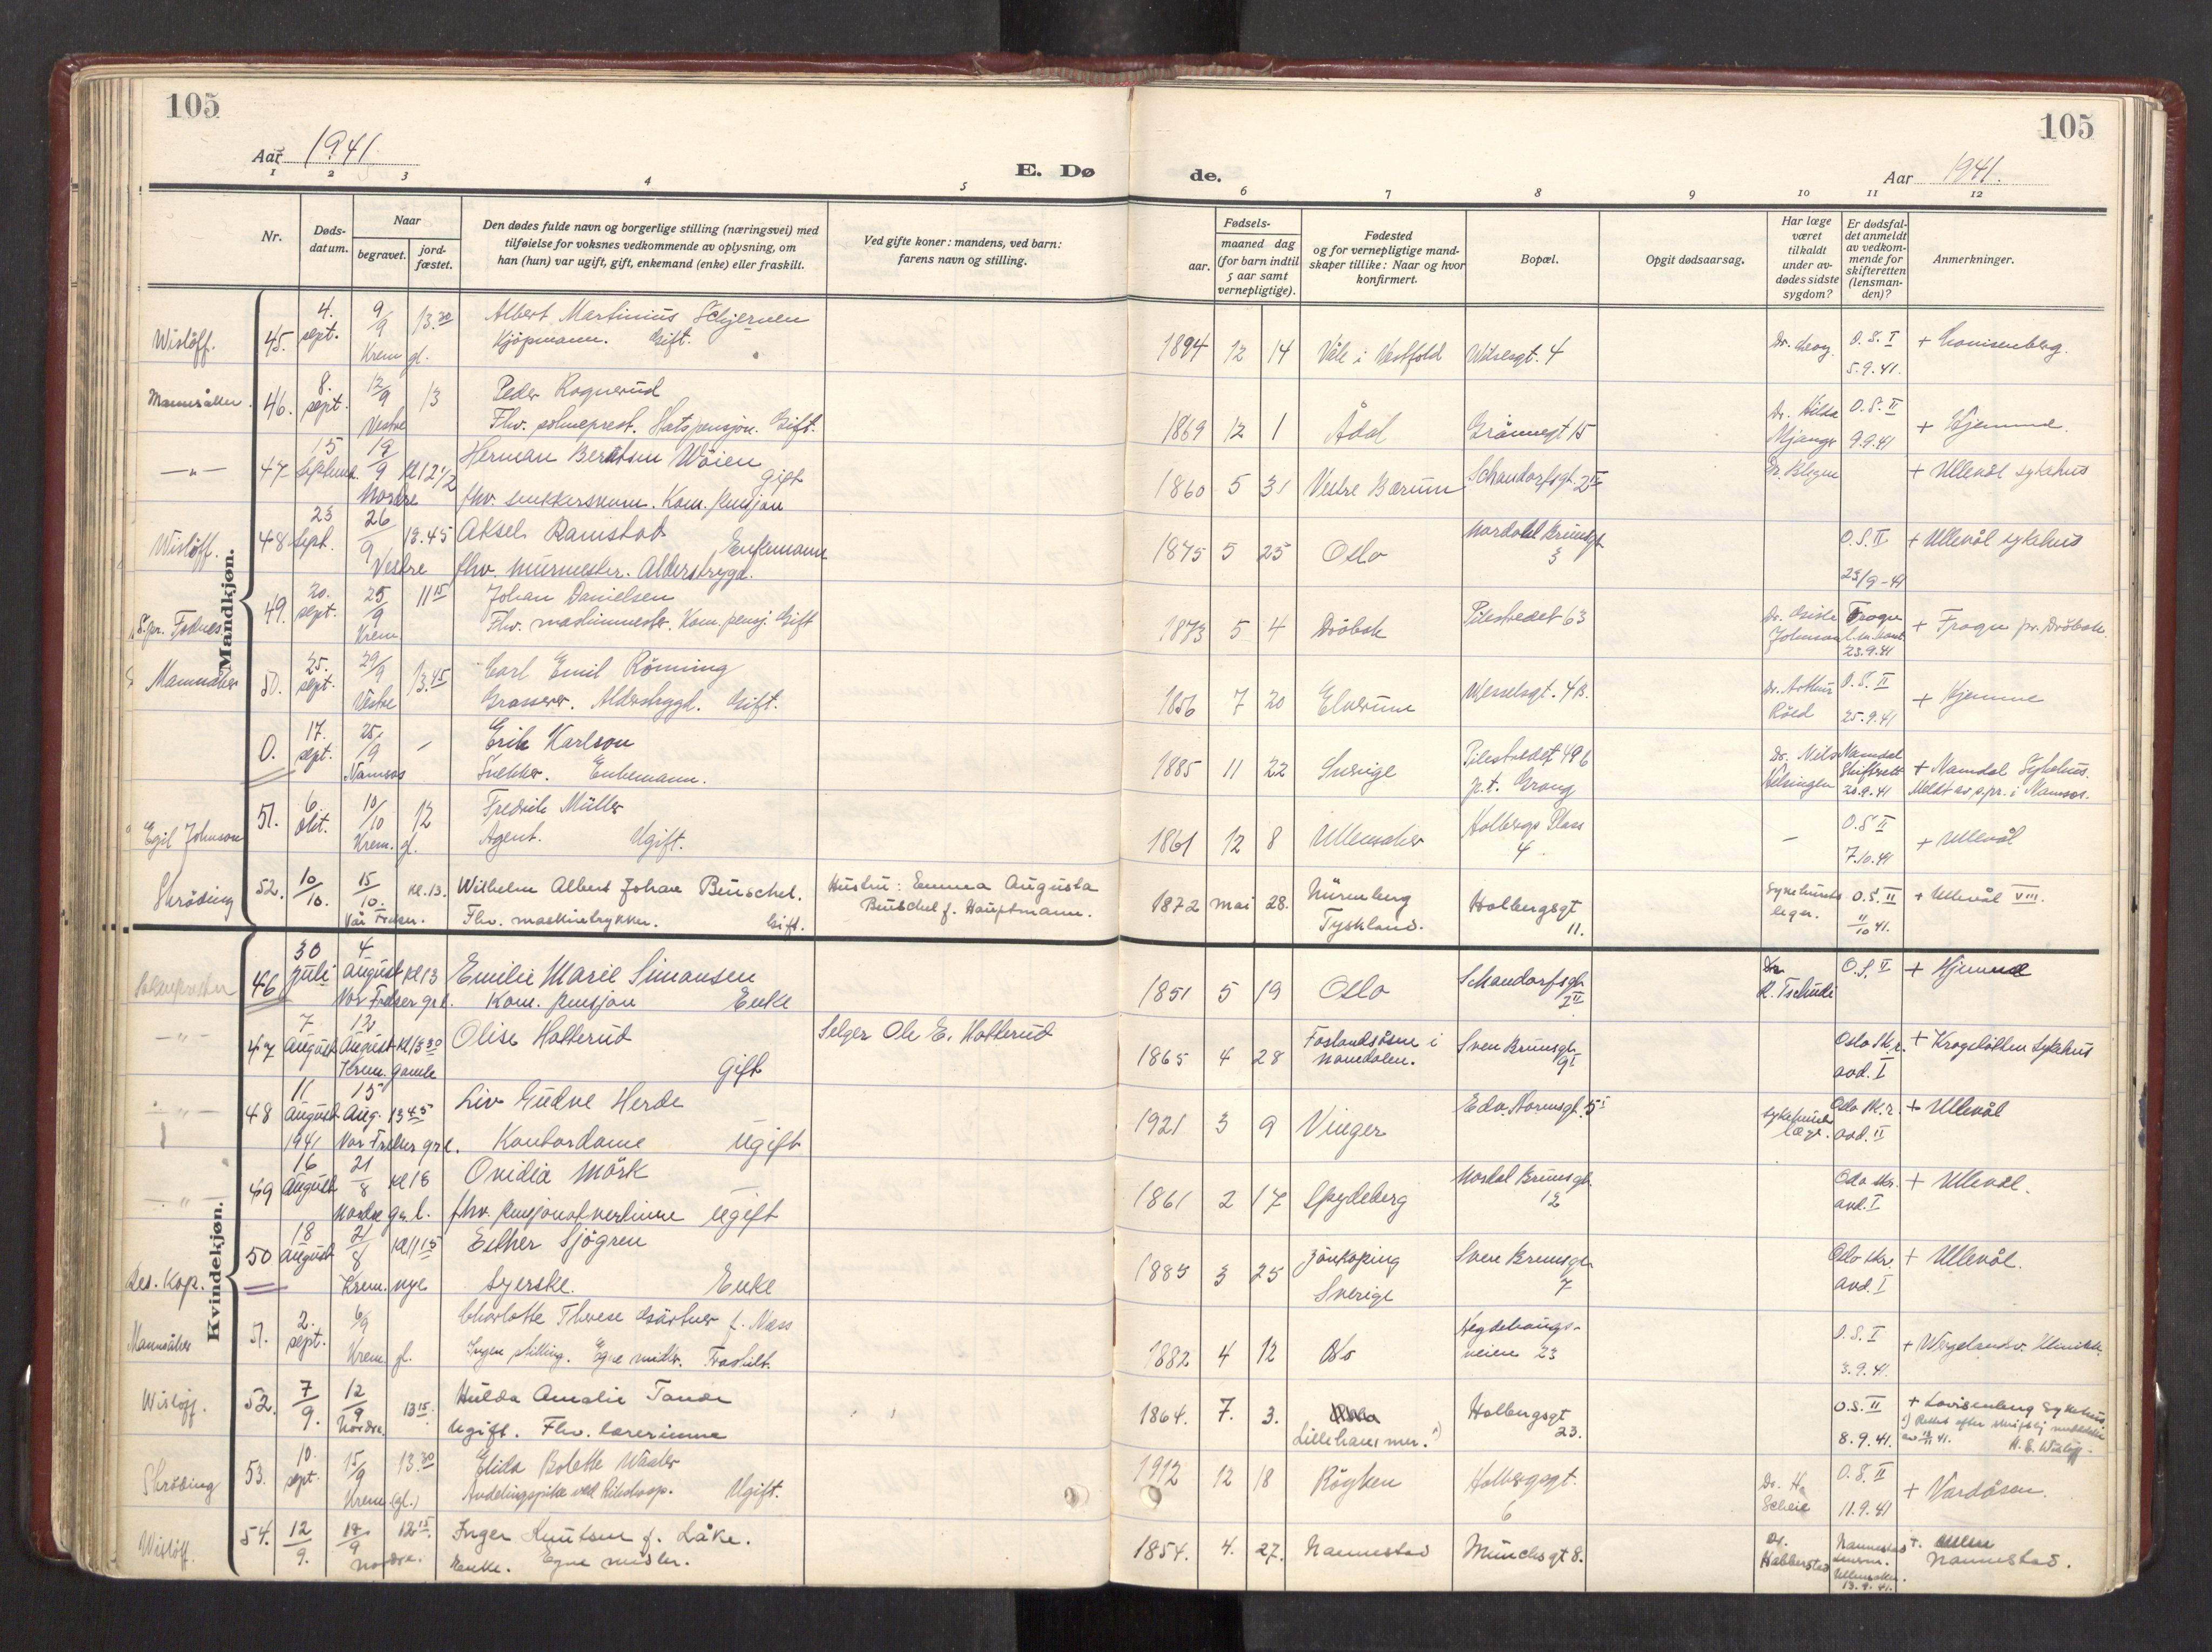 105
Aar 1941.
E. Dø
1
2
3
4
5
Nr.
Døds-
datum.
Naar
begravet.
jord-
fæstet.
Den dødes fulde navn og borgerlige stilling (næringsvei) med
tilføielse for voksnes vedkommende av oplysning, om
han (hun) var ugift, gift, enkemand (enke) eller fraskilt.
Ved gifte koner: mandens, ved barn:
farens navn og stilling.
Mandkjøn.
Wislöff. 45. 4. sept. 9/9 13.30 Albert Martinius Schjerven
Krem gl. Kjöpmann. Gift.
Mannsåker. 46. 8. sept. 12/9 13 Peder Rognerud
Vestre Fhv. sogneprest. Statspensjon. Gift.
—"— 47 15 septemb. 19/9 Kl 12 1/2 Herman Berntsen Wöien
Nordre fhv. snekkersvenn. Kom. pensjon gift
Wislöff. 48 23 sept. 26/9 13.45 Aksel Ramstad Enkemann
Vestre fhv. murmester. Alderstrygd.
S.pr. Fodnes. 49. 20. sept. 25/9 11 15 Johan Danielsen
Krem Fhv. maskinmester. Kom. pensj. Gift
Mannsåker 50. 25. sept. 29/9 13.45 Carl Emil Rönning
Vestre Grosserer. Alderstrygd. Gift.
0. 17. sept. 25/9 – Erik Karlson
Namsos Snekker. Enkemann.
Egil Johnson 51. 6. okt. 10/10 12 Fredrik Müller
Krem. gl. Agent. Ugift.
Skröding 52. 10/10. 15/10. Kl. 13. Wilhelm Albert Johan Beuschel. Hustru: Emma Augusta
Vår Frelser. Fhv. maskintrykker. Gift. Beuschel f. Hauptmann.
Kvindekjøn.
46 30 juli 4 august Kl 13 Emilie Marie Simonsen
Vor Frelser grl. Kom. pensjon Enke
—"— 47 7 August 12 August Kl 13 30 Olise Hatterud Selger Ole E. Hatterud
Krem. gamle Gift
—"— 48 11 August 1941 15 Aug. 13 45 Liv Gudve Herde
Vor Frelser grl. Kontordame ugift
—"— 49 16 August 21/8 Kl 18 Ovidia Mörk
Nordre grl. fhv. pensjonatvertinne ugift
Res. Kap. 50 18 August 21/8 Kl 11 15 Esther Sjögren
Krem. nye Syerske. Enke
Mannsåker 51. 2. sept. 6/9 Charlotte Therese Gärtner f. Næss
Krem. gl. Ingen stilling. Egne midler. Fraskilt.
Wislöff. 52. 7/9. 12/9 13 15. Hulda Amalie Tande
Nordre. Ugift. Fhv. lærerinne
Skröding 53. 10. sept. 15/9 13.30 Elida Bolette Waaler
Krem (gl.) Ugift.
Wislöff. 54. 12/9. 17/9 12 15. Inger Knutsen f. Låke.
Nordre. Enke. Egne midler.
105
Aar 1941.
de.
6
7
8
9
10
11
12
Fødsels-
aar.
maaned dag
(for barn indtil
5 aar samt
vernepligtige).
Fødested
og for vernepligtige mand-
skaper tillike: Naar og hvor
konfirmert.
Bopæl.
Opgit dødsaarsag.
Har læge
været
tilkaldt
under av-
dødes sidste
sygdom?
Er dødsfal-
det anmeldt
av vedkom-
mende for
skifteretten
(lensman-
den)?
Anmerkninger.
1894 12 14 Våle i Vestfold Wilsesgt. 4 O.S. I 5.9.41. + Lovisenberg.
1869 12 1 Ådal Grönnegt 15 Dr. Hilda Mjangr O.S. II 9.9.41 + Hjemme.
1860 5 31 Vestre Bærum Schandorfsgt. 2 II + Ullevål sykehus
1875 5 25 Oslo Nordahl Brunsgt 3 O.S. II 23/9-41 + Ullevål sykehus
1873 5 4 Dröbak Pilestredet 63 Johnson Frogn 23.9.41 + Frogn pr. Dröbak.
1856 7 20 Elverum Wesselsgt. 4 B. Dr. Arthur Röed O.S. II 25.9.41 + Hjemme
1885 11 22 Sverige Pilestredet 49 b p.t. Grong Dr. Nils Namdal Skifterett 20.9.41 + Namdal Sykehus.
Meldt av s.pr. i Namsos.
1861 12 8 Ullensaker Holbergs Plass 4 – O.S. II 7.10.41 + Ullevål
1872 mai 28. Nürnberg Tyskland. Holbergsgt 11. Sykehusets leger. O.S. II 11/10 41. + Ullevål VIII.
1851 5 19 Oslo Schandorfsgt. 2 II Dr. R. Tschudi O.S. II + Hjemme
1865 4 28 Foslandsosen i Namdalen. Sven Brunsgt. 9 I Oslo Sk.r. avd. I + Krogstötten sykehus
1921 3 9 Vinger Edv. Stormsgt. 5 I Sykehusets læge. Oslo sk.r. avd. II + Ullevål
1861 2 17 Spydeberg Nordal Brunsgt. 12 Oslo skr. avd. I + Ullevål.
1883 3 25 Jönköping Sverige Sven Brunsgt. 7 Oslo skr. avd. I + Ullevål.
1882 4 12 Oslo Hegdehaugs- veien 23 O.S. I 3.9.41. + Wergelandsv. Klinikk.
1864. 7. 3. Lillehammer. *) Holbergsgt 23. O.S. II 8.9.41. + Lovisenberg sykehus.
*) Rettet efter skriftlig meddelelse
1912 12 18 Röyken Holbergsgt. 6 Dr. H. Scheie O.S. II 11.9.41 + Vardåsen.
1854. 4. 27. Nannestad Munchsgt 8. Dr. Habberstad Nannestad Lensm. Ullensaker. 13.9.41. + Nannestad.